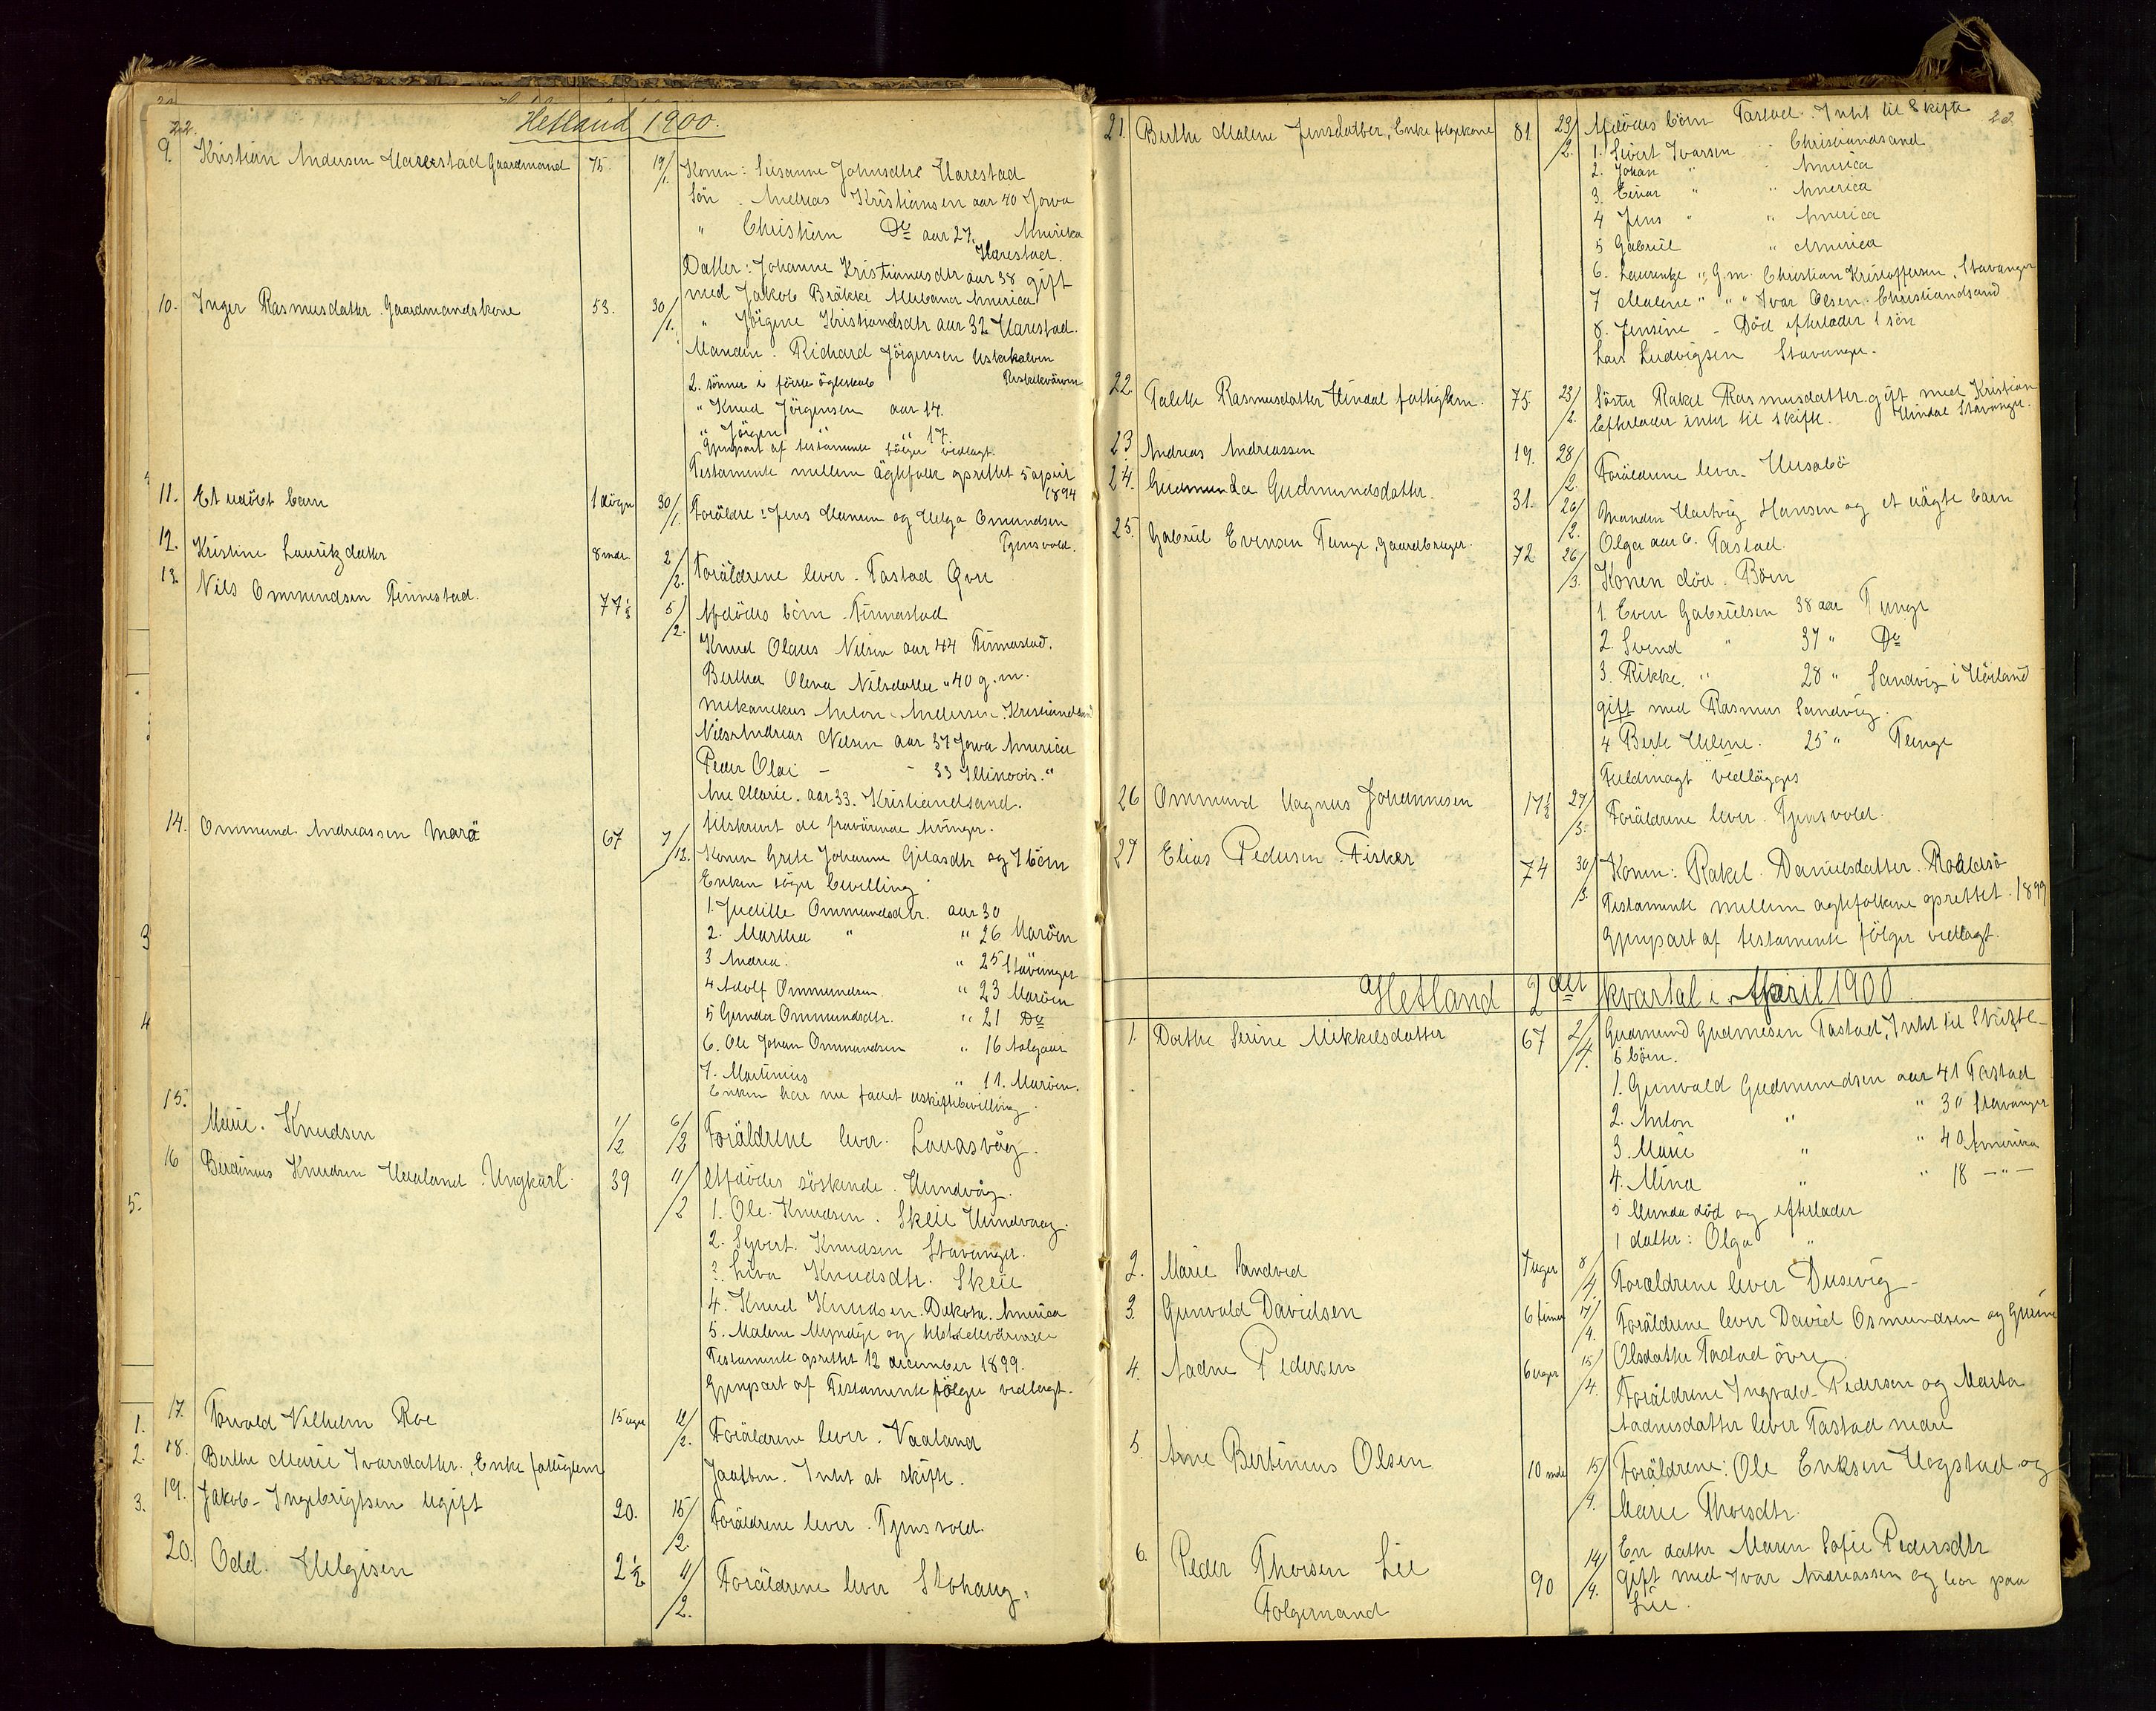 22.
Hetland 1900.
9. Kristian Andersen Harestad Gaardmand 75. 19/1. Konen: Susanne Johnsdtr Harestad
Sön Andreas Kristiansen aar 40 Jowa
" Christian Do aar 27. Amerika
Harestad.
Datter: Johanne Kristiansdtr aar 38 gift
med Jakob Bräkke America
" Jörgine Kristiansdtr aar 32 Harestad.
10. Inger Rasmusdatter Gaardmandskone 53. 30/1. Manden: Richard Jörgensen Uskekalven
2. sönner i förste ägteskab
" Knud Jörgensen aar 14.
" Jörgen " " 17.
Gjenpart af testamente fölger vedlagt.
Testamente mellem ägtefolk oprettet 5 april 1894
11. Et udöbt barn 1 dögn 30/1. Foräldre: Jens Hansen og Helga Omundsen
Tjensvold.
12. Kristine Lauritzdatter 8 mdr. 2/2. Foräldrene lever. Tastad Övre
13. Nils Ommundsen Finnestad. 77½ 5/2. Afdödes börn Finnestad
Knud Olaus Nilsen aar 44 Finnestad.
Bertha Olena Nilsdatter " 40 g. m.
mekanikus Anton Andersen. Kristiandsand
Nils Andreas Nilsen aar 37 Jowa America
Peder Olai - - 33 Illinovis. "
Ane Marie. aar 33. Kristiandsand.
tilskrevet de fravärende arvinger.
14. Ommund Andreassen Marö 67 7/12. Konen Grete Johanne Giliasdtr og 7 börn
Enken söger bevilling
1. Judille Ommundsdtr. aar 30
2. Martha " " 26 Maröen
3 Andrea. " 25 Stavanger
4 Adolf Ommundsen " 23 Maröen
5 Gunda Ommundsdtr. " 21 Do
6. Ole Johan Ommundsen " 16
7. Martinius " 11. Maröen.
Enken har nu faaet uskiftebevilling.
15. Marie. Knudsen 1/2 6/2 Foräldrene lever.
16 Berdinius Knudsen Haaland. Ungkarl. 39 11/2 Afdödes söskende. Hundvåg.
1. Ole. Knudsen. Skeie Hundvaag.
2. Syvert. Knudsen Stavanger.
3. Liva Knudsdtr. Skeie
4. Knud Knudsen. Dakota. America
5. Malene
Testamente oprettet 12 december 1899.
Gjenpart af Testamente fölger vedlagt.
17. Torvald Vilhelm Roe 15 uger 12/2. Foräldrene lever. Vaaland
18. Berthe Marie Ivarsdatter. Enke fattiglem Jaatten. Intet at skifte.
19. Jakob Ingebrigtsen Ugift 20. 15/2 Foräldrene lever. Tjensvold.
20. Odd. Helgesen 2½ 11/2. Foräldrene lever Stohaug.
3
4
5.
1.
2.
3.
23
21. Berthe Malene Jensdatter, Enke folgekone 81. 23/2. Afdödes börn Tastad. Intet til Skifte
1. Sivert Ivarsen " Christiandsand
2. Johan " " America
3. Einar " " America
4 Jens " " America
5 Gabriel " America
6. Laurentze " G.m. Christian Kristoffersen, Stavanger
7 Malene " " " Ivar Olsen. Christiandsand
8. Jensine - Död efterlader 1 sön
Lars Ludvigsen Stavanger.
22. Talette Rasmusdatter Hindal fattiglem. 75. 23/2. Söster Rakel Rasmusdatter gift med Kristian
Efterlader intet til skifte. Hindal Stavanger.
23 Andreas Andreassen 19. 28/2. Foräldrene lever. Husabö
24. Gudmunda Gudmundsdatter. 31. 26/2. Manden Hartvig Hansen og et uägte barn
Olga aar 6. Tastad.
25. Gabriel Evensen Tunge, gaardbruger. 72 26/3. Konen död. Börn
1. Even Gabrielsen 38 aar Tunge
2. Svend " 37 " Do
3. Rikke. " 28 " Sandvig i Höiland
gift med Rasmus Sandvig.
4 Berte Helene. 25 " Tunge
Fuldmagt vedlägges
26 Ommund Magnus Johannesen 17½ 27/3. Foräldrene lever. Tjensvold.
27 Elias Pedersen. Fisker 74 30/3. Konen: Rakel. Danielsdatter. Roaldsö
Testamente mellem ägtefolkene oprettet. 1899
Gjenpart af testamente fölger vedlagt.
Hetland 2det kvartal i April 1900
1. Dorthe Serine Mikkelsdatter 67 2/4. Gudmund Gudmesen Tastad, Intet til Skifte
5 börn.
1. Gunvald Gudmundsen aar 41 Tastad
2. Anton " " 30 Stavanger
3. Marie " " 40 America
4. Mina " " 18 - " -
5 Munda död og efterlader
1 datter: Olga "
2. Marie Sandved 7 uger 8/4 Forældrene lever Dusevig
3. Gunvald Davidsen 6 timer 17/4. Foräldrene lever David Osmundsen og Gurine
Olsdatter Tastad övre
4. Aadne Pedersen 6 uger 15/4. Foräldrene Ingvald Pedersen og Marta
Aadnesdatter lever Tastad nedre
5. Arne Bertinius Olsen 10 mdr 15/4. Foräldrene: Ole Eriksen Hogstad og
Marie Thorsdtr.
6. Peder Thorsen Lie 90 14/4. En datter Maren Sofie Pedersdtr
Folgemand gift med Ivar Andreassen og bor paa
Lie.